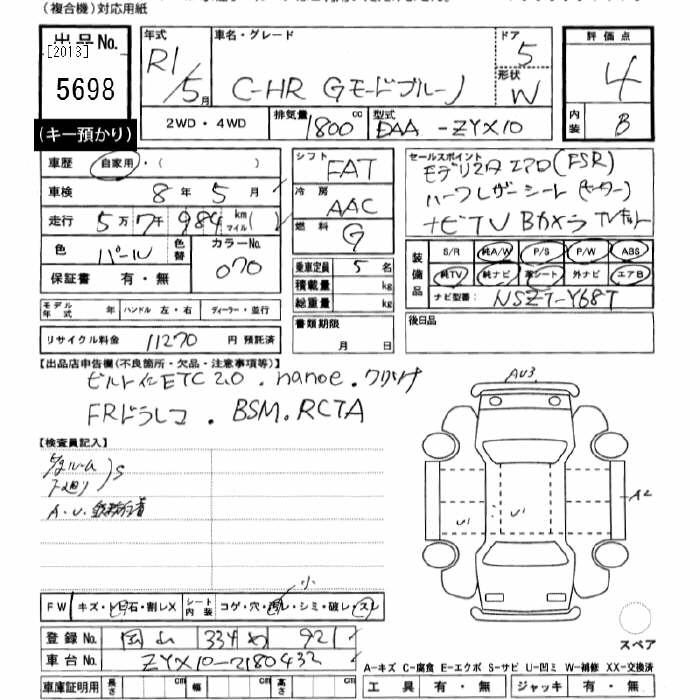 (複合機)対応用紙
出品No. [2013] 5698 (キー預かり)
年式 R1/5月 車名・グレード C-HR GモードブルーJ ドア 5 形状 W
評価点 4 内装 B
2WD・4WD 排気量 1800cc 型式 DAA-ZYX10
車歴 自家用・( )
車検 8年5月
走行 5万7千984 km マイル( )
色 パール 色替 カラーNo. 070
保証書 有・無
モデル年式 年 ハンドル 左・右 ディーラー・並行
リサイクル料金 11270円 預託済
シフト FAT
冷房 AAC
燃料 G
乗車定員 5名
積載量 kg
総重量 kg
書類期限 月 日
セールスポイント
モデリスタエアロ(FSR)
ハーフレザーシート(ヒーター)
ナビTV Bカメラ TVキット
装備品 S/R 純A/W P/S P/W ABS
純TV 純ナビ 革シート 外ナビ エアB
ナビ型番: NSZT-Y68T
後日品
【出品店申告欄(不良箇所・欠品・注意事項等)】
ビルトインETC2.0.nanoe.
FRドラレコ.BSM.RCTA
【検査員記入】
AU3
A2
U1 U1
S
A.U.
小
FW キズ・ヒビ・石・割レX シート内装 コゲ・穴・切レ・シミ・破レ・スレ
登録No. 岡山 334 921
車台No. ZYX10-2180432
スペア
A-キズ C-腐食 E-エクボ S-サビ U-凹ミ W-補修 XX-交換済
車庫証明用 長さ cm 幅 cm 高さ cm 工具 有・無 ジャッキ 有・無